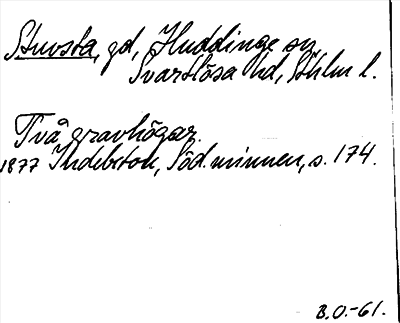 Stuvsta, gd, Huddinge sn,
Svartlösa hd, Sthlm l.
Två gravhögar.
1877 Indebetou, Söd. minnen, s. 174.
B.O.-61.